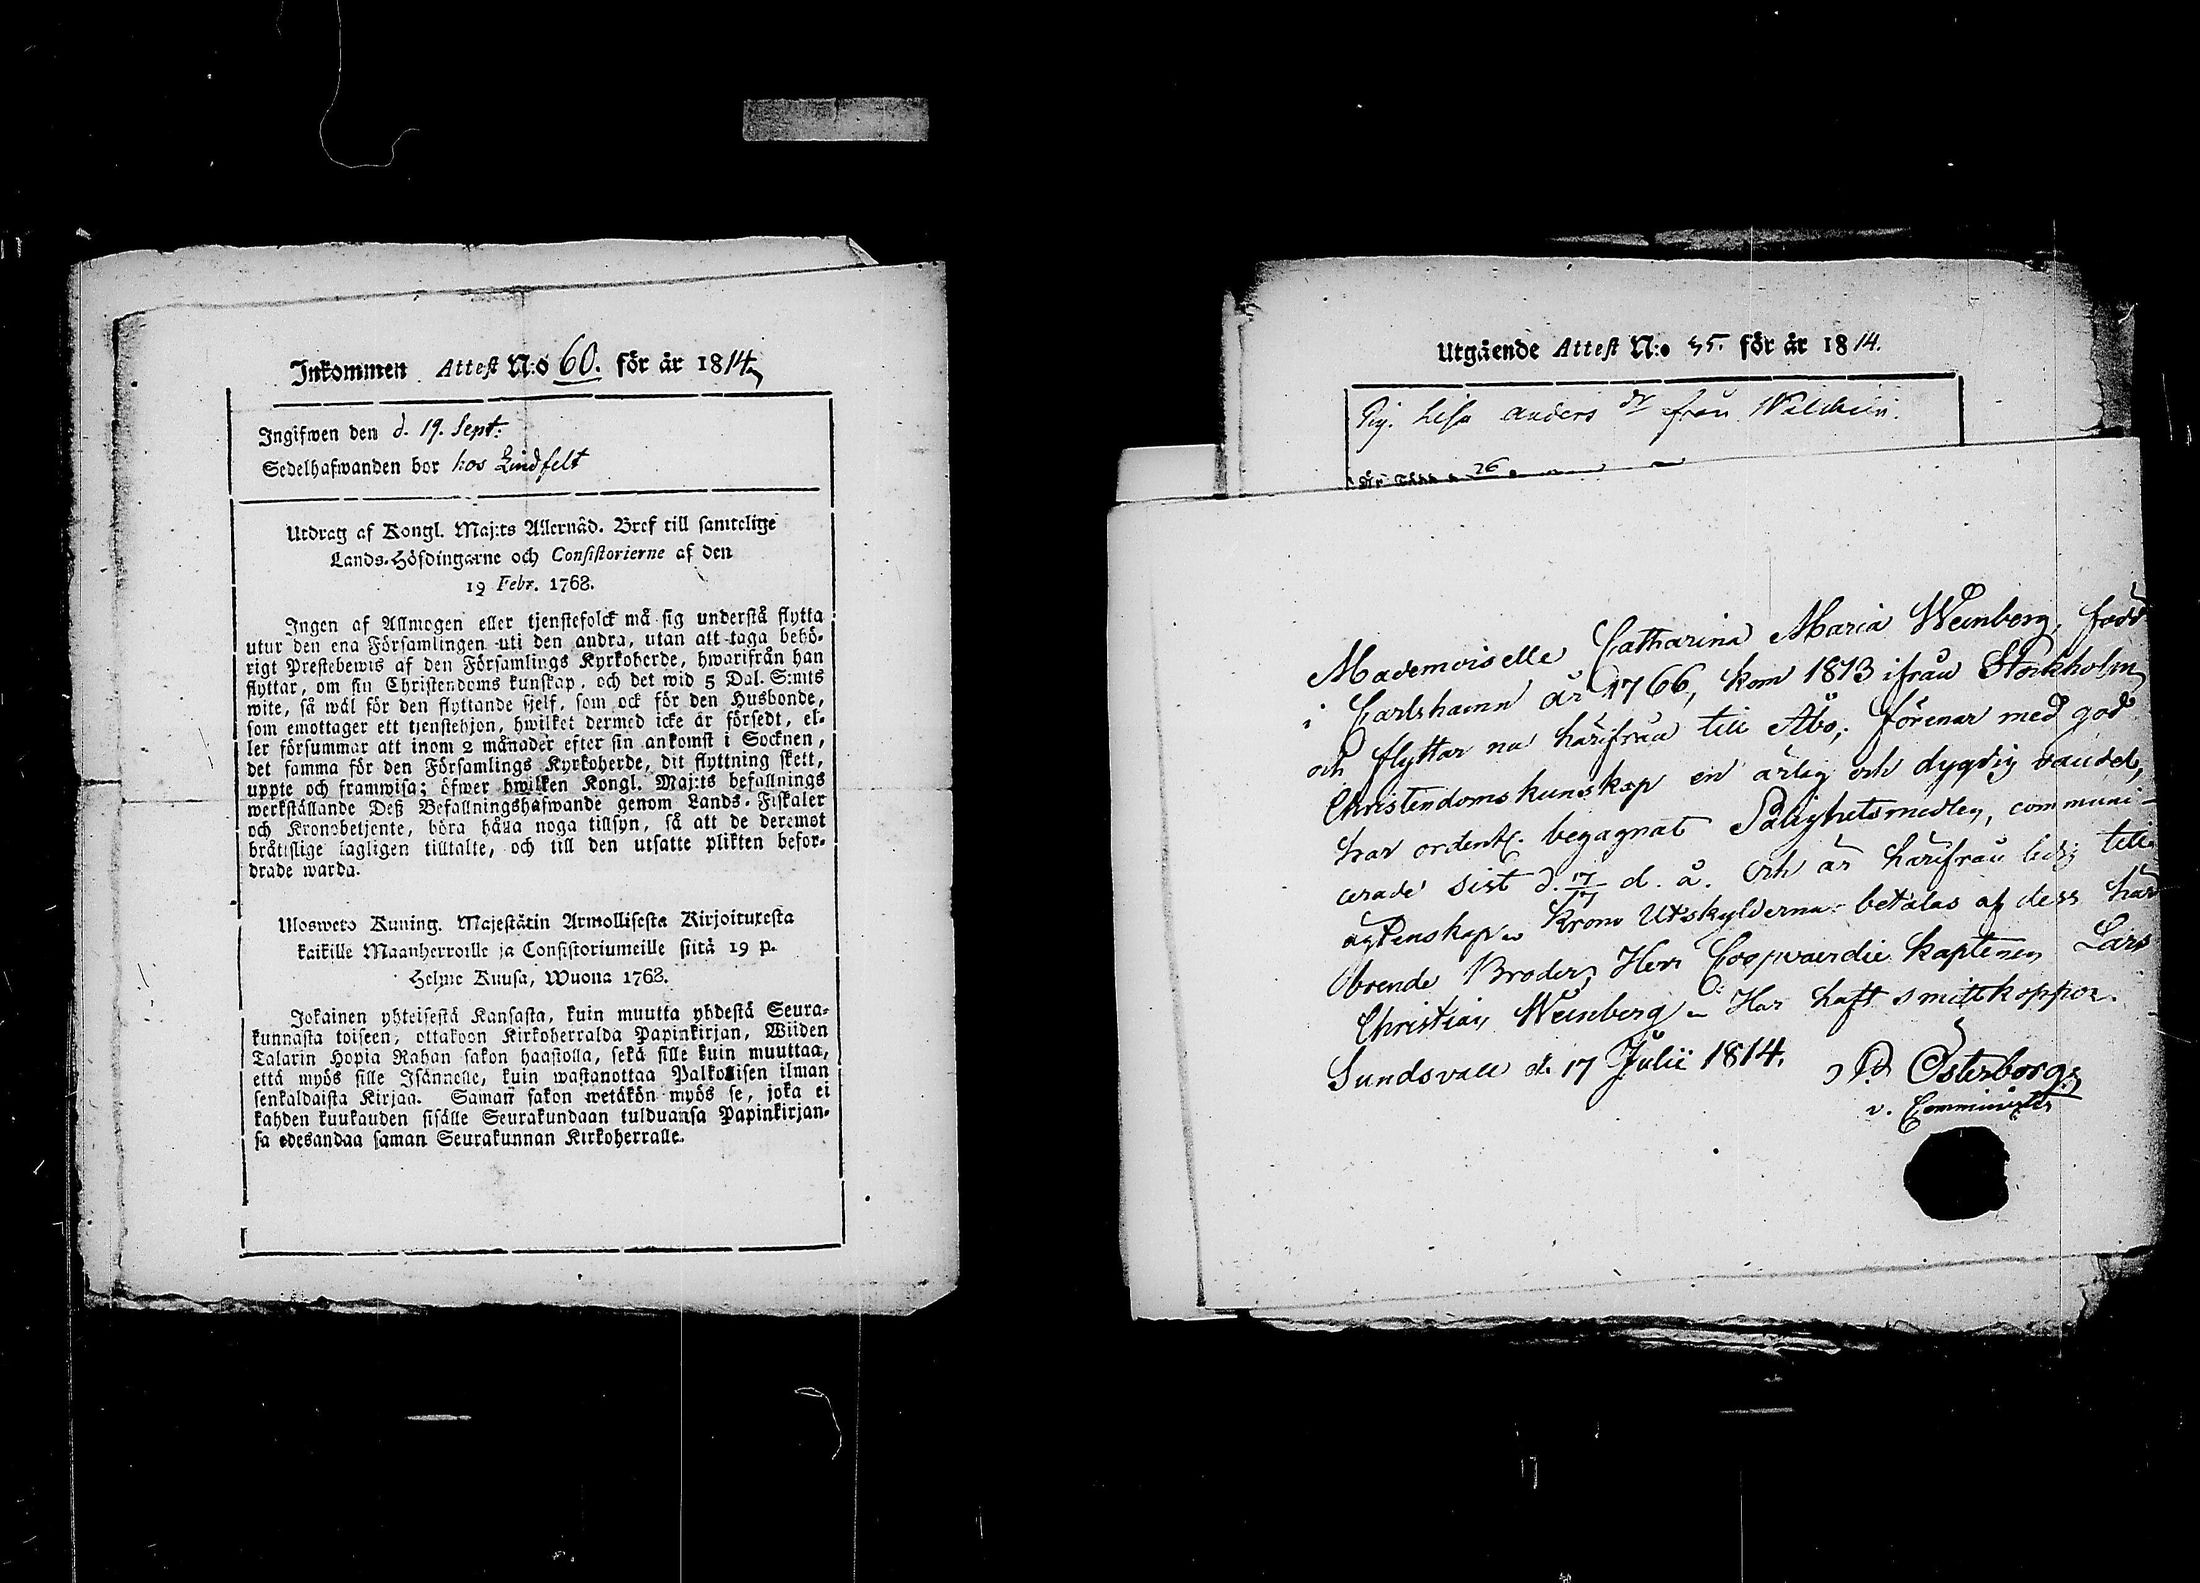 Inkommen Attest N:o 60. för år 1814
Ingifwen den d. 19. Sept:
Sedelhafwanden bor hos Lindfelt
Utdrag af Kongl. Maj:ts Allernåd. Bref till samtelige
Lands-Höfdingarne och Consistorierne af den
19 Febr. 1768.
Ingen af Allmogen eller tjenstefolck må sig understå flytta
utur den ena Församlingen uti den andra, utan att taga behö-
rigt Prestebewis af den Församlings Kyrkoherde, hwarifrån han
flyttar, om sin Christendoms kunskap, och det wid 5 Dal. S:mts
wite, så wäl för den flyttande sjelf, som ock för den Husbonde,
som emottager ett tjenstehjon, hwilket dermed icke är försedt, el-
ler försummar att inom 2 månader efter sin ankomst i Socknen,
det samma för den Församlings Kyrkoherde, dit flyttning skett,
uppte och framwisa; öfwer hwilken Kongl. Maj:ts befallnings
werkställande Deß Befallningshafwande genom Lands-Fiskaler
och Kronobetjente, böra hålla noga tillsyn, så att de deremot
bråtislige lagligen tilltalte, och till den utsatte plikten befor-
drade warda.
Ulosweto Kuning. Majestätin Armollisesta Kirjoituxesta
kaikille Maanherroille ja Consistoriumeille siitä 19 p.
Helme Kuusa, Wuona 1768.
Jokainen yhteisestä Kansasta, kuin muutta yhdestä Seura-
kunnasta toiseen, ottakoon Kirkoherralda Papinkirjan, Wiiden
Talarin Hopia Rahan sakon haastolla, sekä sille kuin muuttaa,
että myös sille Isännelle, kuin wastanottaa Palkolisen ilman
senkaldaista Kirjaa. Saman sakon wetäkön myös se, joka ei
kahden kuukauden sisälle Seurakundaan tulduansa Papinkirjan-
sa edesandaa saman Seurakunnan Kirkoherralle.
Utgående Attest N:o 35. för år 1814.
Pig. Lisa Anders dr från
26
Mademoiselle Catharina Maria Weinberg, född
i Carlshamn år 1766, kom 1813 ifrån Stockholm,
och flyttar nu härifrån till Åbo; förenar med god
Christendomskunskap en ärlig och dygdig vandel,
har ordentl. begagnat Salighetsmedlen, communi-
cerade sist d. 17/7 d. å. och är härifrån ledig till
ägtenskap. Krono Utskylderna betalas af dess här
boende Broder, Herr Coopvaerdie Kaptenen Lars
Christian Weinberg. Har haft smittkoppor.
Sundsvall d. 17 Julii 1814.
Österberg
v. Comminister